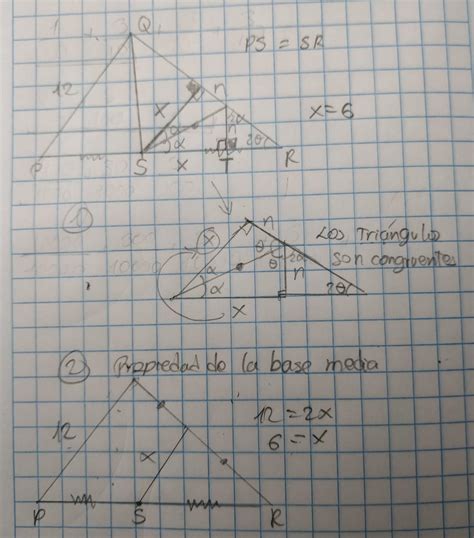 Q
PS = SR
12
n
x
x=6
α
2α
n
α
2θ
P
S
x
T
R
①
x
n
Los Triángulos
son congruentes
θ
θ
2α
α
α
n
2θ
x
② Propiedad de la base media
12
12=2x
6=x
x
P
S
R